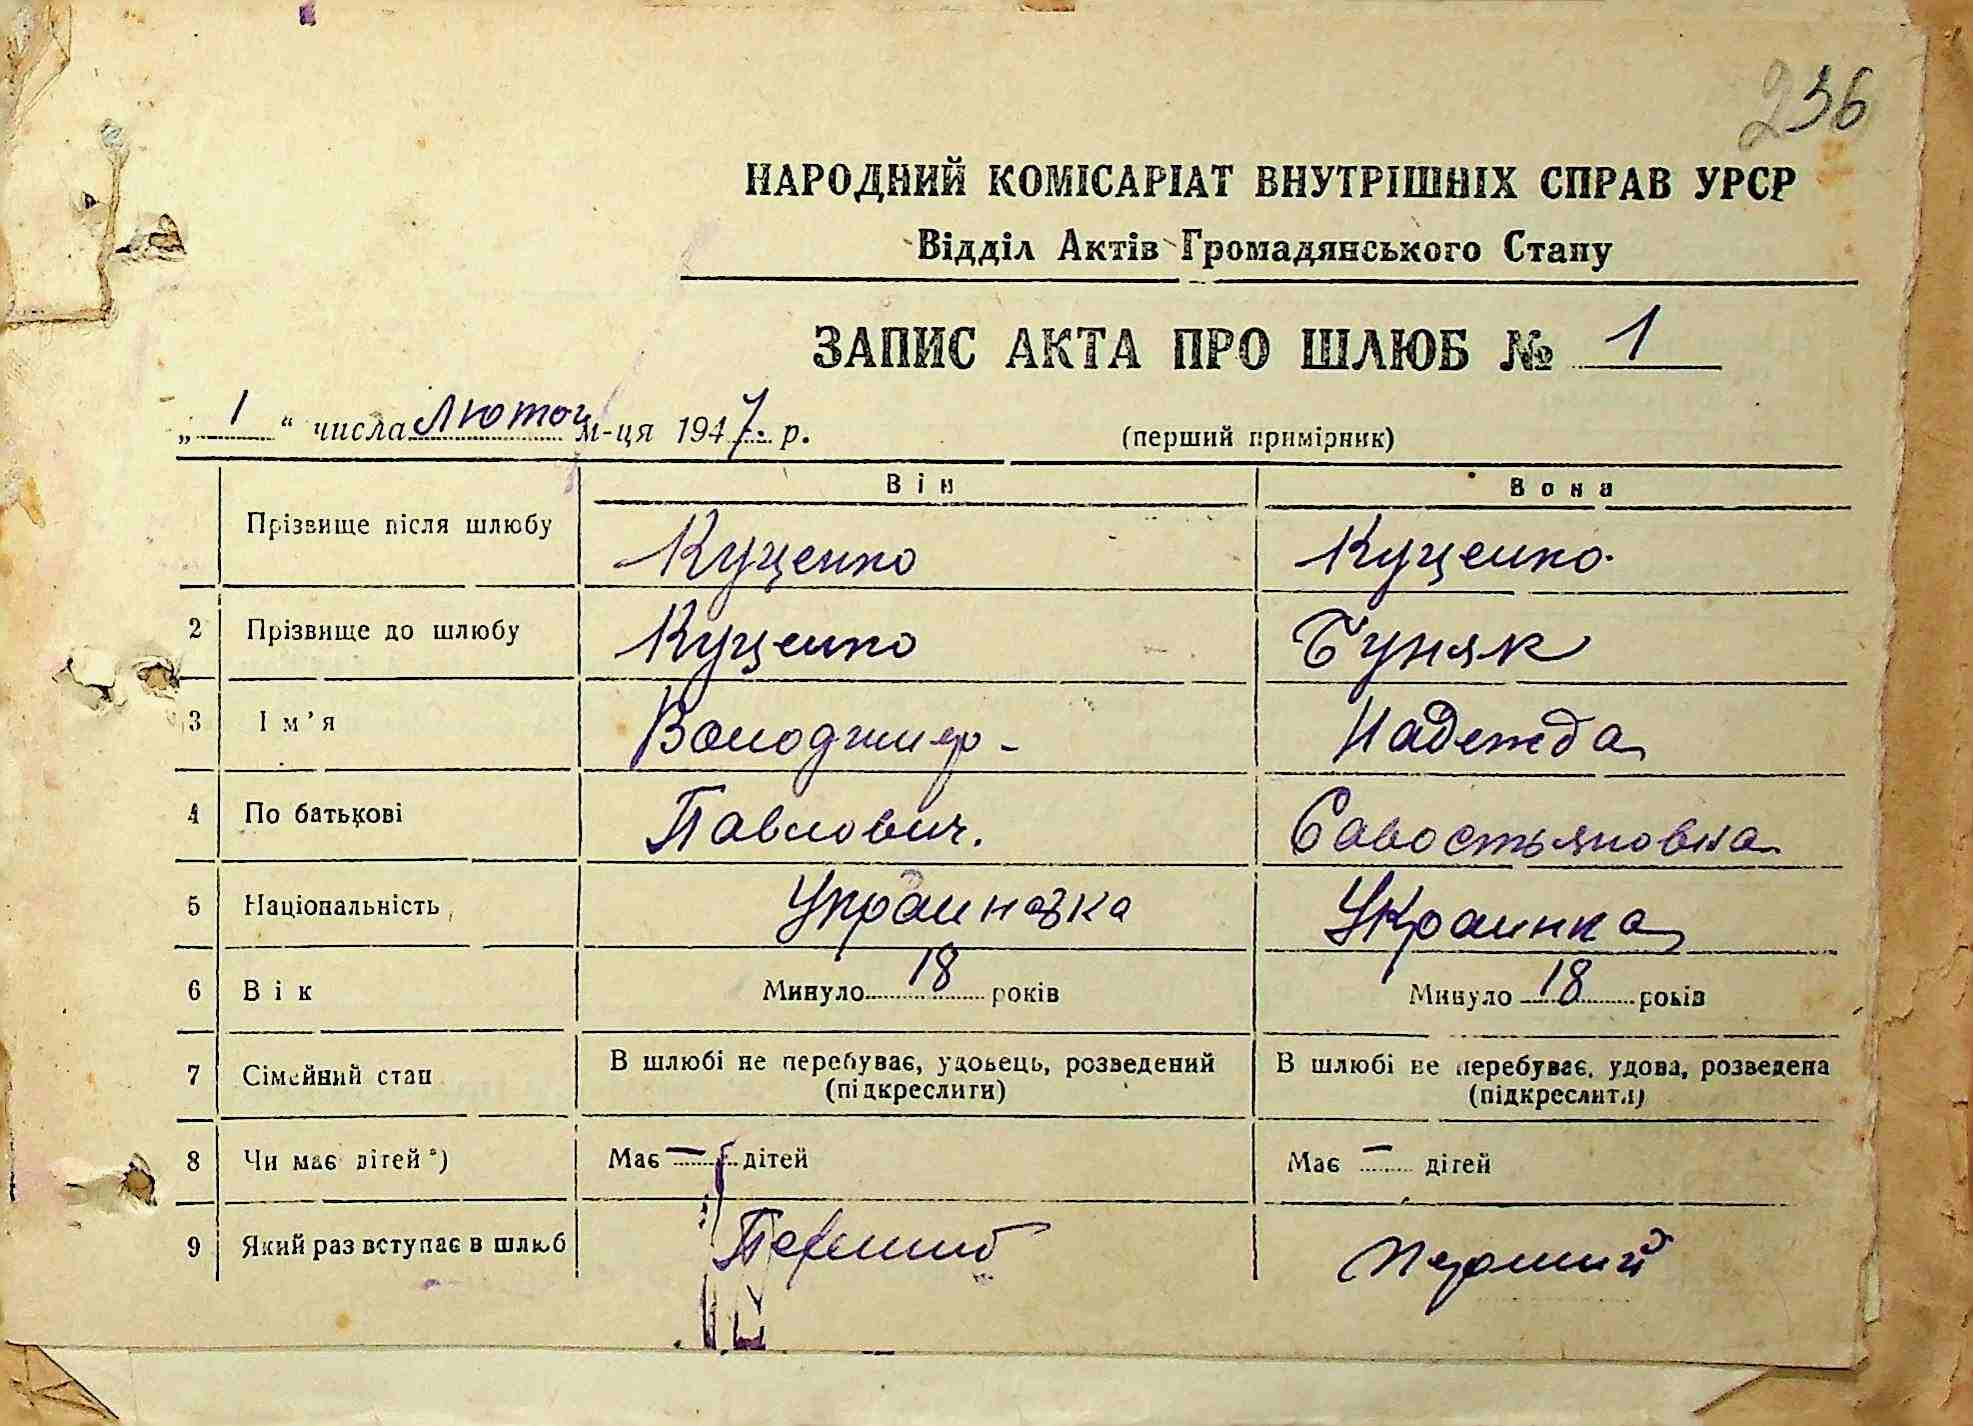 236
НАРОДНИЙ КОМІСАРІАТ ВНУТРІШНІХ СПРАВ УРСР
Відділ Актів Громадянського Стану
ЗАПИС АКТА ПРО ШЛЮБ № 1
„ 1 “ числа Лютого м-ця 1947. р. (перший примірник)
Він Вона
Прізвище після шлюбу Куценко Куценко.
2 Прізвище до шлюбу Куценко Буняк
3 Ім’я Володимир - Надежда
4 По батькові Павлович. Савостьяновна
5 Національність Украинка
6 Вік Минуло 18 років Минуло 18 років
7 Сімейний стан В шлюбі не перебуває, удовець, розведений В шлюбі не перебуває, удова, розведена
(підкреслити) (підкреслити)
8 Чи має дітей *) Має — дітей Має — дітей
9 Який раз вступає в шлюб Першиб Перший